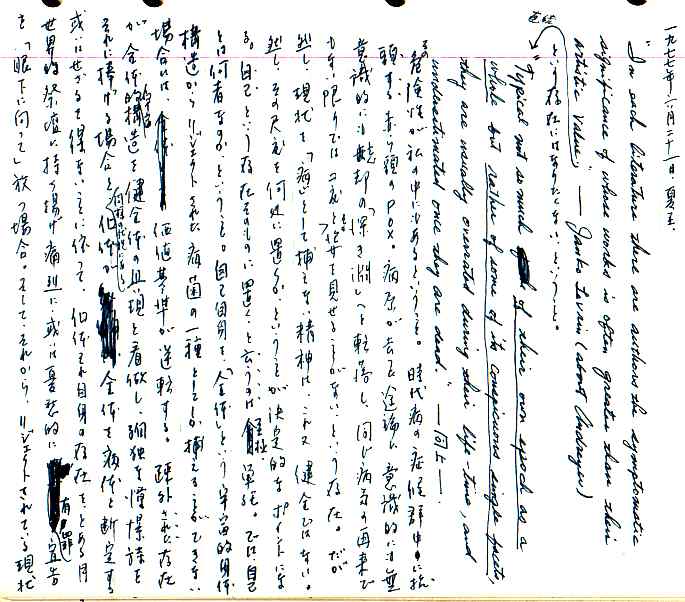 一九七七年六月二十一日、夏至。
"In such literature there are authors the symptomatic
significance of whose works is often greater than their
artistic value." — Janko Lavrin (about Andreyev)
という存在にはなりたくない、ということ。
"Typical not so much of their own epoch as a
whole but rather of some of its conspicuous single facets,
they are usually overrated during their life-time, and
underestimated once they are dead." —同上—.
その危険性が私の中にもあるということ。時代病の症候群中に抗
頭する赤い頭のPOX。病原が去ると途端に意識的にも無
意識的にも の「深き淵」へと転落し、同じ病気の再来で
もない限りではコソとも姿を見せることがないという存在。だが
然し、現状を「病」として捕えない精神は、これ又健全ではない。
然し、その尺度を何処に置くか、ということが決定的なポイントにな
る。自己という存在そのものに置くと云うのは至極単純。では自己
とは何者なのか、ということ。自己自身を、「全体」という宇宙的身体
構造からリジェクトされた病菌の一種としてしか捕えることができない
場合には、価値基準が逆転する。疎外された存在
が全体的構造を健全体の具現と看做し、孤独な憧憬 を
それに捧げる場合と、個体が 全体を病体と断定する
或いはせざるを得ないことに依って、個体それ自身の存在を、とある月
世界的祭壇に持ち揚げ痛烈に或は憂愁的に有罪宣告
を「眼下に向って」放つ場合。そして、それから、リジェクトされている現状